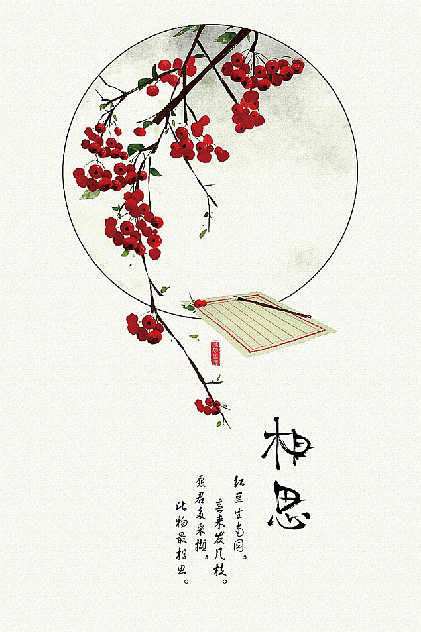 相思
红豆生南国。
春来发几枝。
愿君多采撷。
此物最相思。